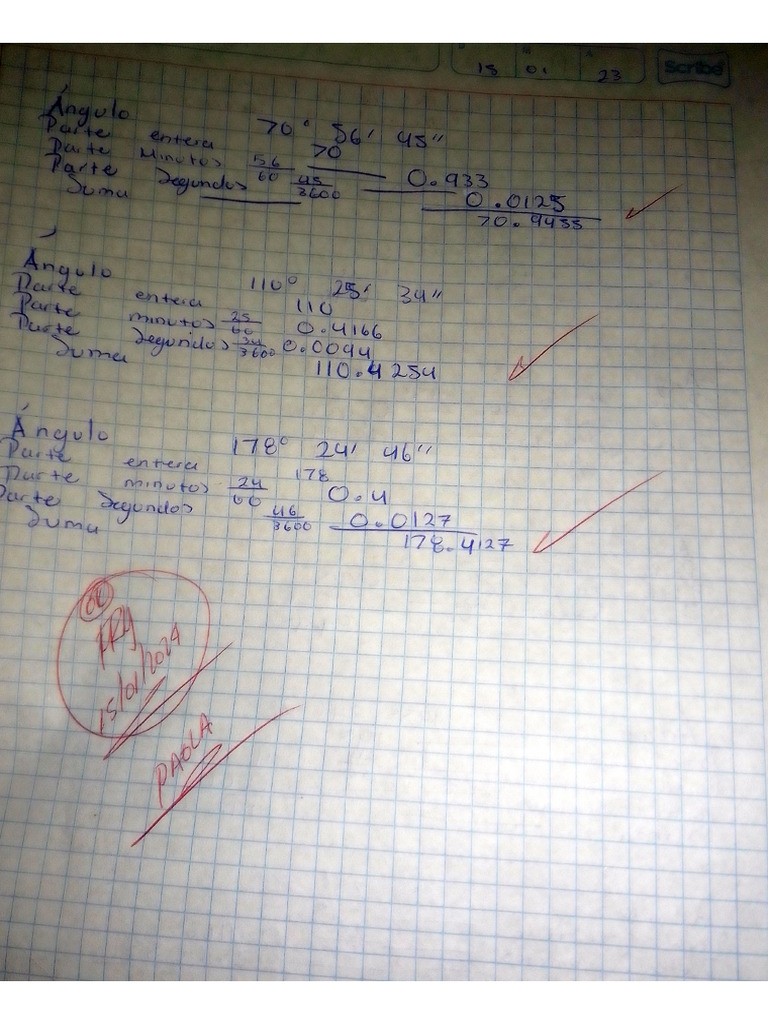 15 01 23 Scribe
Ángulo 70° 56' 45"
Parte entera 70
Parte Minutos 56/60 0.933
Parte Segundos 45/3600 0.0125
Suma 70.9455
Ángulo 110° 25' 34"
Parte entera 110
Parte minutos 25/60 0.4166
Parte Segundos 34/3600 0.0094
Suma 110.4254
Ángulo 178° 24' 46"
Parte entera 178
Parte minutos 24/60 0.4
Parte Segundos 46/3600 0.0127
Suma 178.4127
15/01/2024
PAOLA